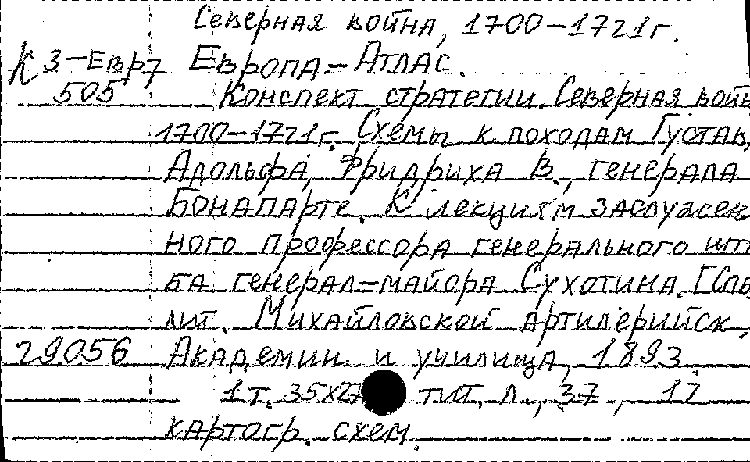 Северная война, 1700-1721г.
К 3-Евр7 Европа-Атлас.
505 Конспект стратегии. Северная войн
1700-1721г. Схемы к походам Густав,
Адольфа, Фридриха В., генерала
Бонапарте. К лекциям заслужен
ного профессора генерального шт
ба генерал-майора Сухотина. [Спб,
лит. Михайловской артилерийск,
29056 Академии и училища, 1893.
1т. 35х2 тит. л., 37, 17
картогр. схем.